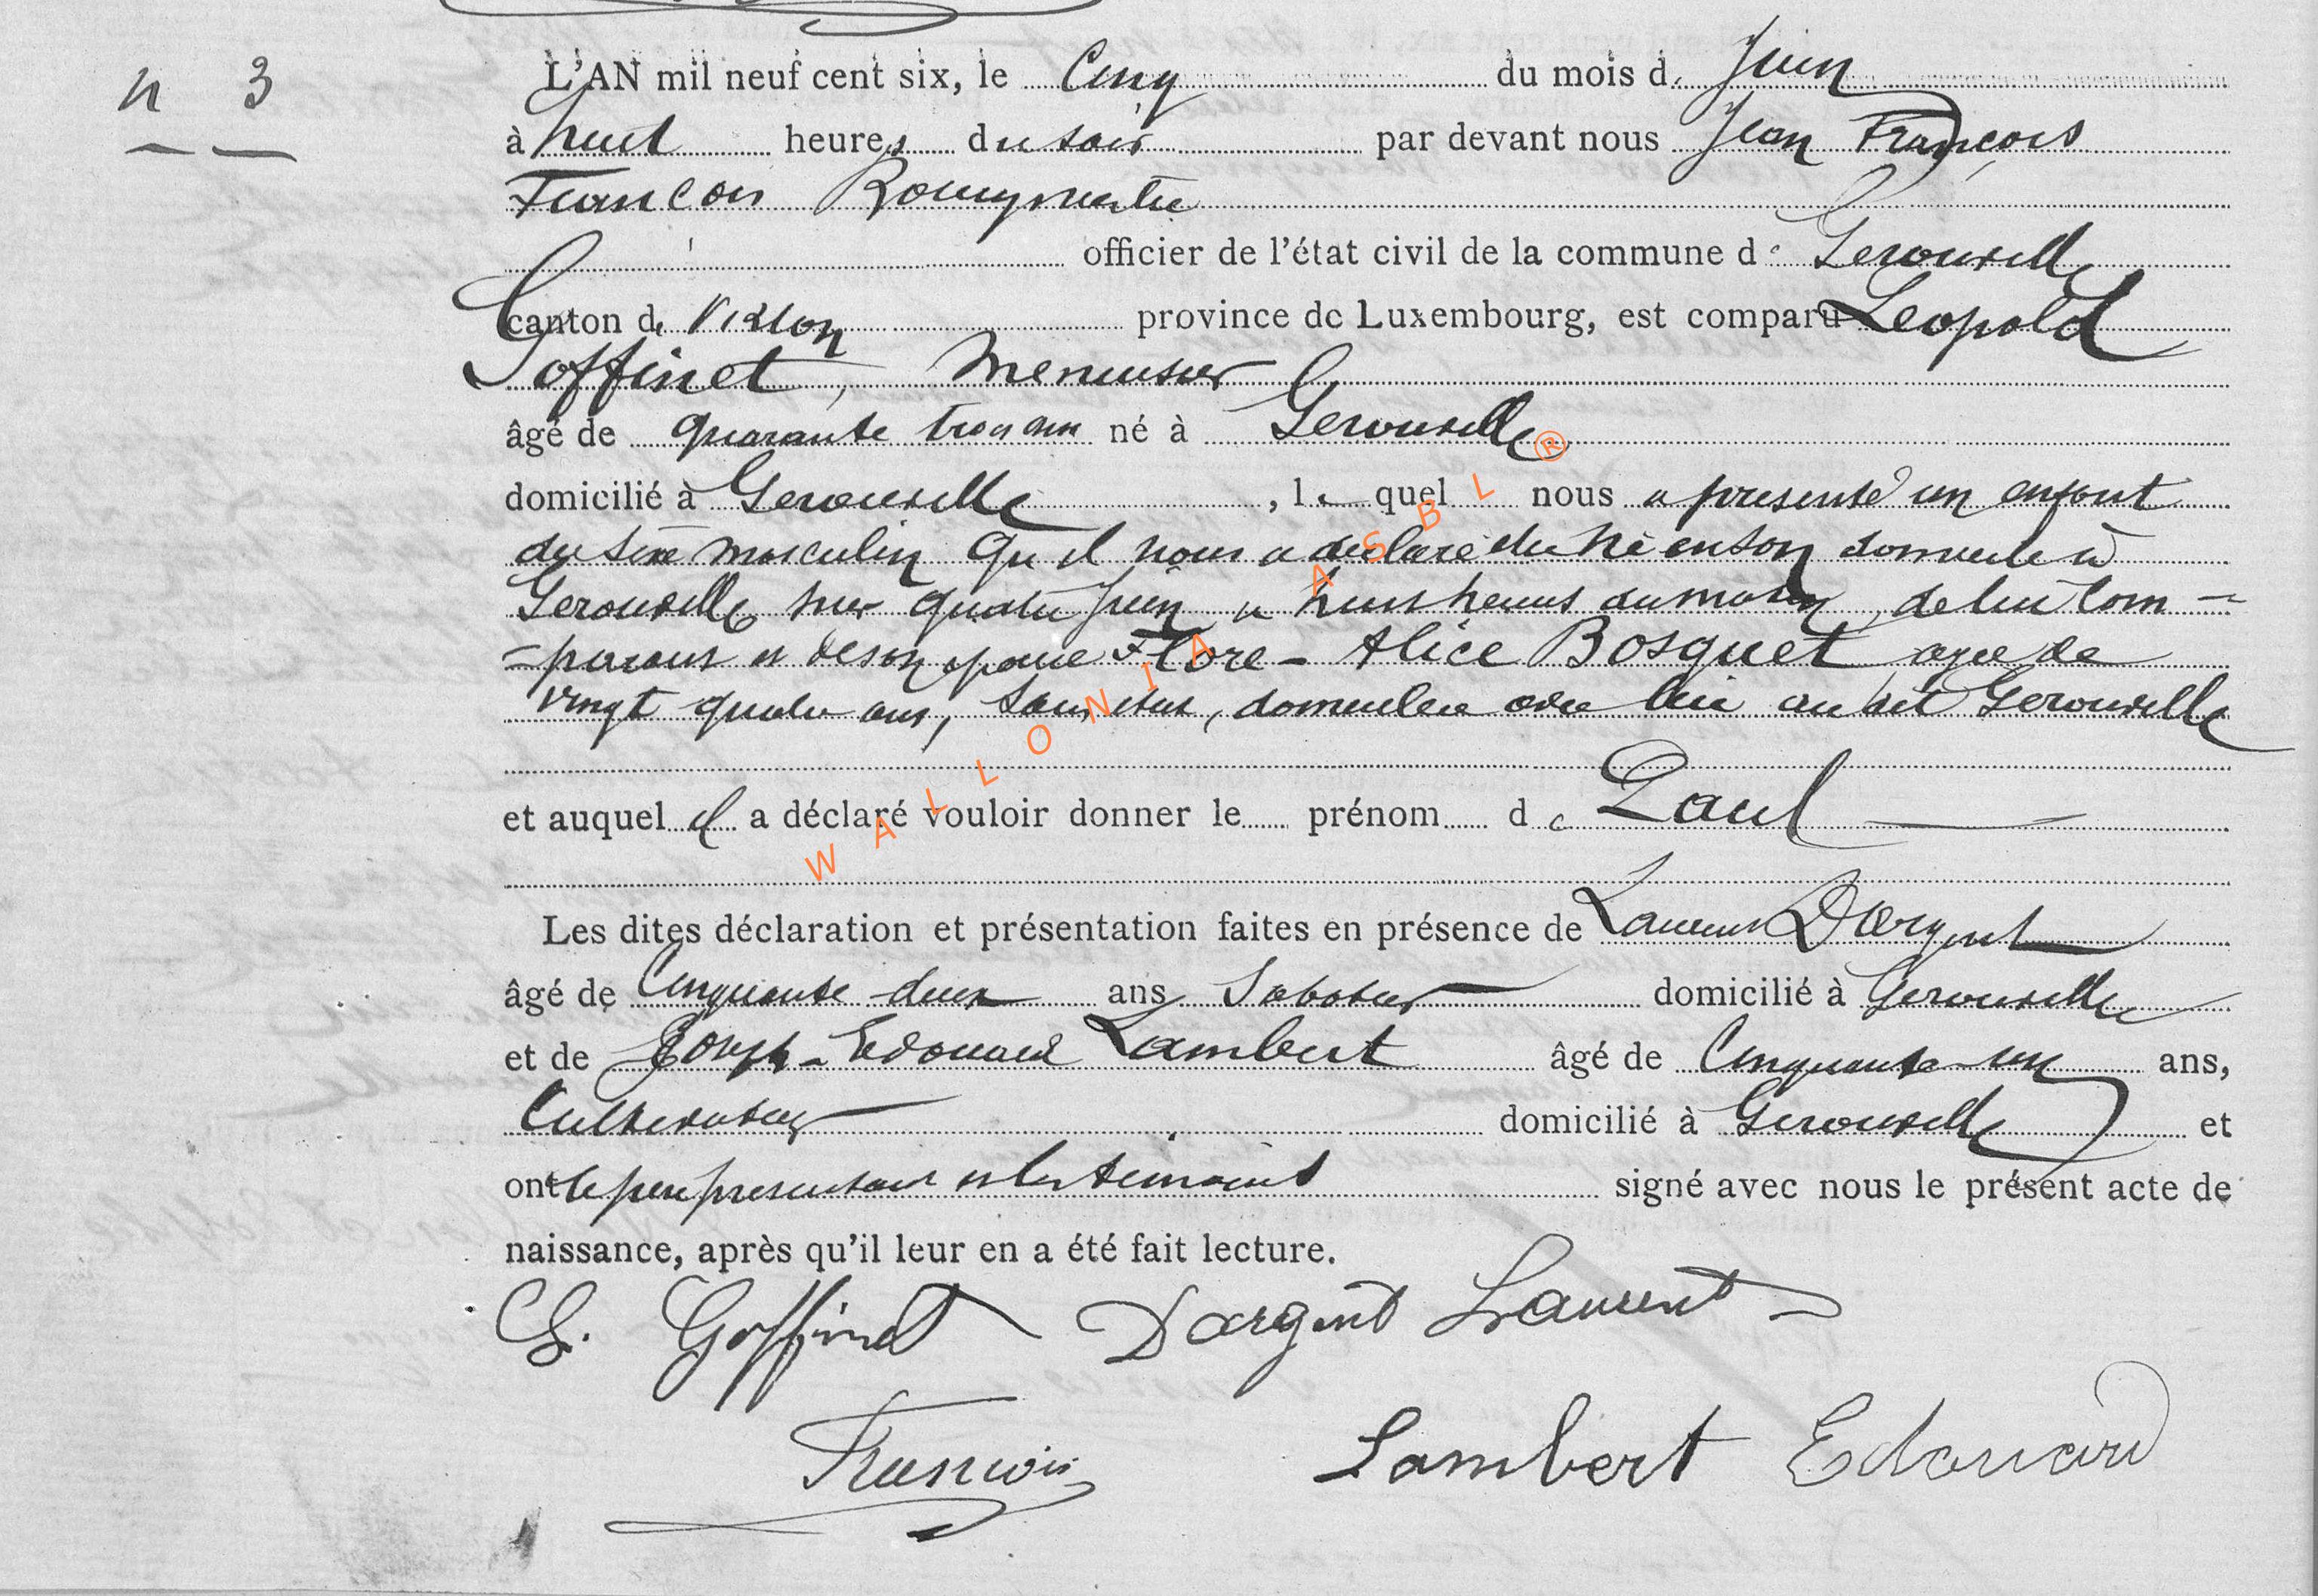 n 3
L'AN mil neuf cent six, le Cinq du mois de Juin
à huit heures du soir par devant nous Jean François
François Bourgmestre
officier de l'état civil de la commune de Gerouville
canton de Virton province de Luxembourg, est comparu Leopold
Goffinet, menuisier
âgé de quarante trois ans né à Gerouville
domicilié à Gerouville, lequel nous a presenté un enfant
du sexe masculin qu'il nous a declaré etre né en son domicile à
Gerouville hier quatre Juin à huit heures du matin, de lui com-
-parant et de son epouse Flore-Alice Bosquet agée de
vingt quatre ans, sans etat, domiciliée avec lui au dit Gerouville
et auquel il a déclaré vouloir donner le prénom de Paul
Les dites déclaration et présentation faites en présence de Laurent Dargent
âgé de Cinquante deux ans Sabotier domicilié à Gerouville
et de Joseph-Edouard Lambert âgé de Cinquante-un ans,
Cultivateur domicilié à Gerouville et
ont le pere presentant et les temoins signé avec nous le présent acte de
naissance, après qu'il leur en a été fait lecture.
Goffinet Dargent Laurent
François Lambert Edouard
WALLONIA ASBL ®